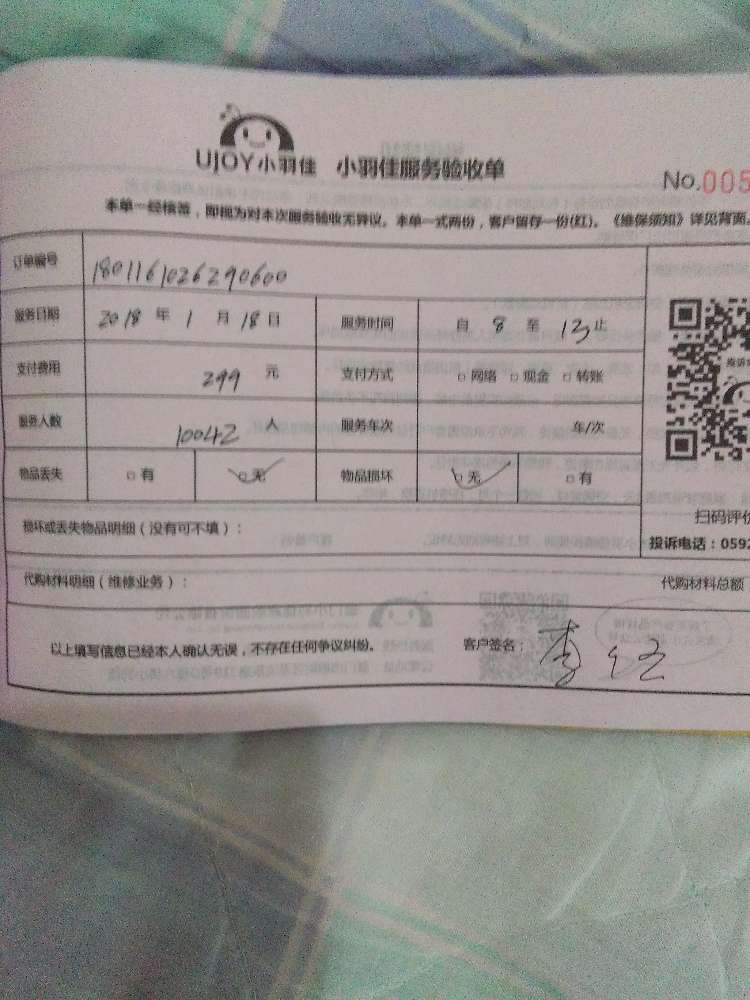 UJOY小羽佳 小羽佳服务验收单
No.005
本单一经核签，即视为对本次服务验收无异议。本单一式两份，客户留存一份(红)。《维保须知》详见背面。
订单编号 1801161026290600
服务日期 2018 年 1 月 18 日 服务时间 自 8 至 13 止
支付费用 299 元 支付方式 □ 网络 □ 现金 □ 转账
服务人数 10042 人 服务车次 车/次
物品丢失 □ 有 □ 无 物品损坏 □ 无 □ 有
扫码评价
损坏或丢失物品明细（没有可不填）：
投诉电话：0592
代购材料明细（维修业务）： 代购材料总额
以上填写信息已经本人确认无误，不存在任何争议纠纷。 客户签名： 李